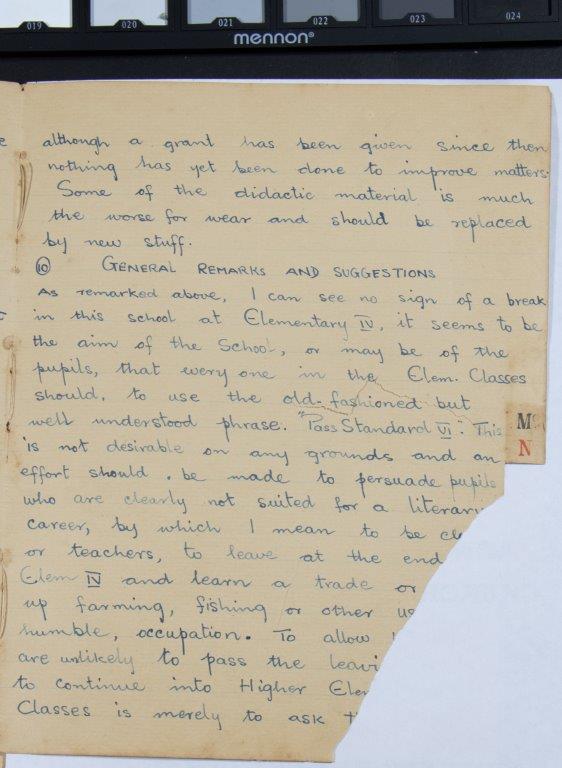 019 020 021 022 023 024
mennon®
although a grant has been given since then
nothing has yet been done to improve matters.
Some of the didactic material is much
the worse for wear and should be replaced
by new stuff.
⑩ GENERAL REMARKS AND SUGGESTIONS
As remarked above, I can see no sign of a break
in this school at Elementary IV, it seems to be
the aim of the School, or may be of the
pupils, that every one in the Elem. Classes
should, to use the old-fashioned but
well understood phrase. "Pass Standard VI". This
is not desirable on any grounds and an
effort should be made to persuade pupils
who are clearly not suited for a literary
career, by which I mean to be
or teachers, to leave at the end
Elem IV and learn a trade or
up farming, fishing or other
humble, occupation. To allow
are unlikely to pass the
to continue into Higher
Classes is merely to ask
M
N